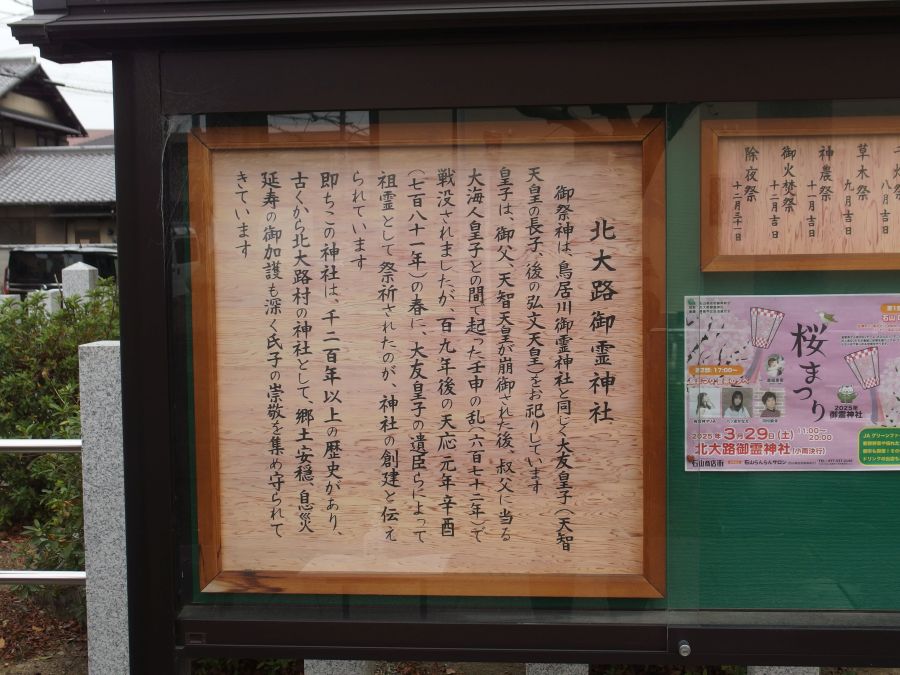 北大路御霊神社
御祭神は、鳥居川御霊神社と同じく大友皇子(天智
天皇の長子、後の弘文天皇)をお祀りしています
皇子は、御父、天智天皇が崩御された後、叔父に当る
大海人皇子との間で起った壬申の乱(六百七十二年)で
戦没されましたが、百九年後の天応元年辛酉
(七百八十一年)の春に、大友皇子の遺臣らによって
祖霊として祭祈されたのが、神社の創建と伝え
られています
即ちこの神社は、千二百年以上の歴史があり、
古くから北大路村の神社として、郷土安穏、息災
延寿の御加護も深く氏子の崇敬を集め守られて
きています
草木祭 九月吉日
神農祭 十月吉日
御火焚祭 十二月吉日
除夜祭 十二月三十一日
桜まつり
2025年
御霊神社
2025年3月29日(土) 11:00~20:00
北大路御霊神社(小雨決行)
石山商店街
石山らんらんサロン